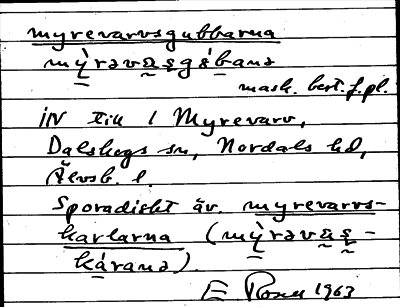 myrevarvsgubbarna
mỳrəva̰s̰gúbanə
mask. best. f. pl.
inv till l Myrevarv,
Dalskogs sn, Nordals hd,
Älvsb. l.
Sporadiskt äv. myrevarvs-
karlarna (mỳrəva̰s̰-
káranə).
E Rosen 1963